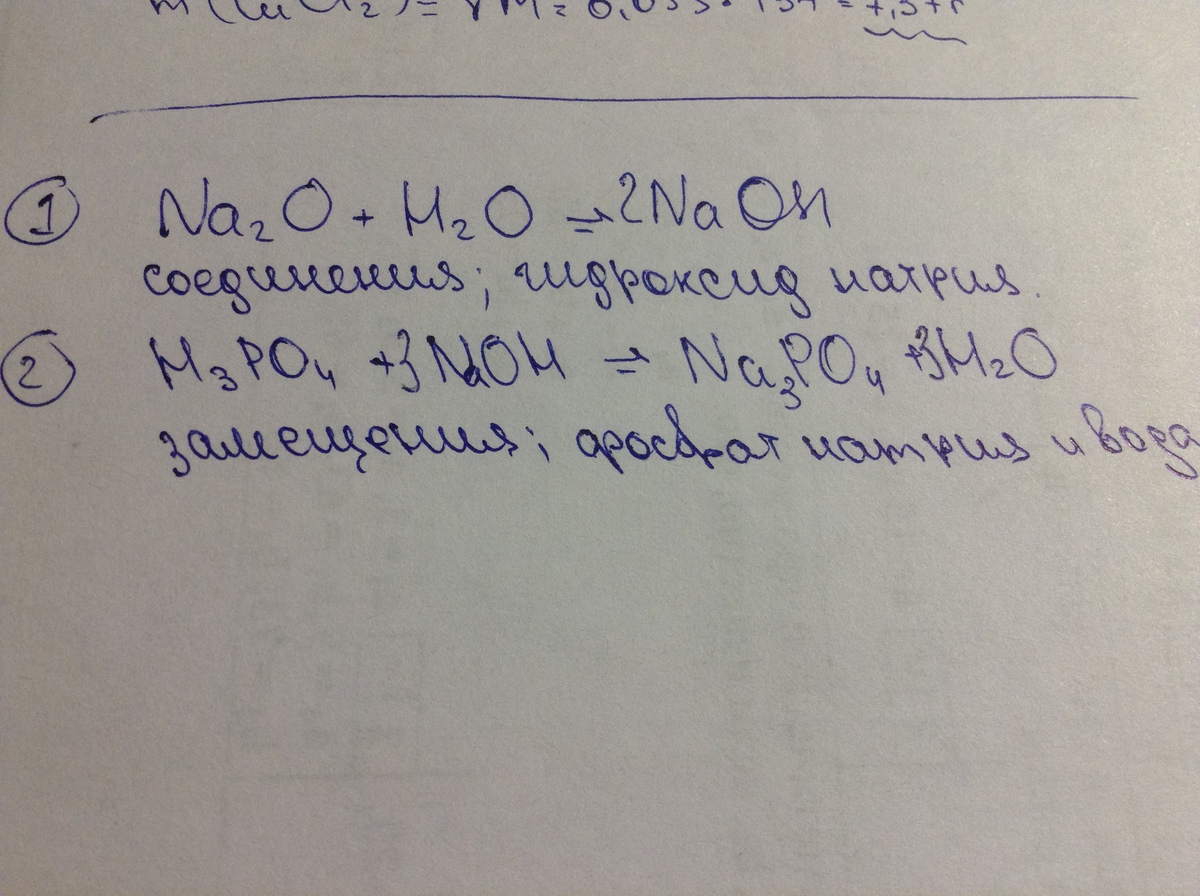 m(CuCl₂) = νM = 0,055 ·
① Na₂O + H₂O ⇒ 2NaOH
соединения; гидроксид натрия.
② H₃PO₄ + 3NaOH ⇒ Na₃PO₄ + 3H₂O
замещения; фосфат натрия и вода